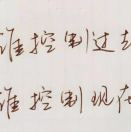 谁控制过去
谁控制现在